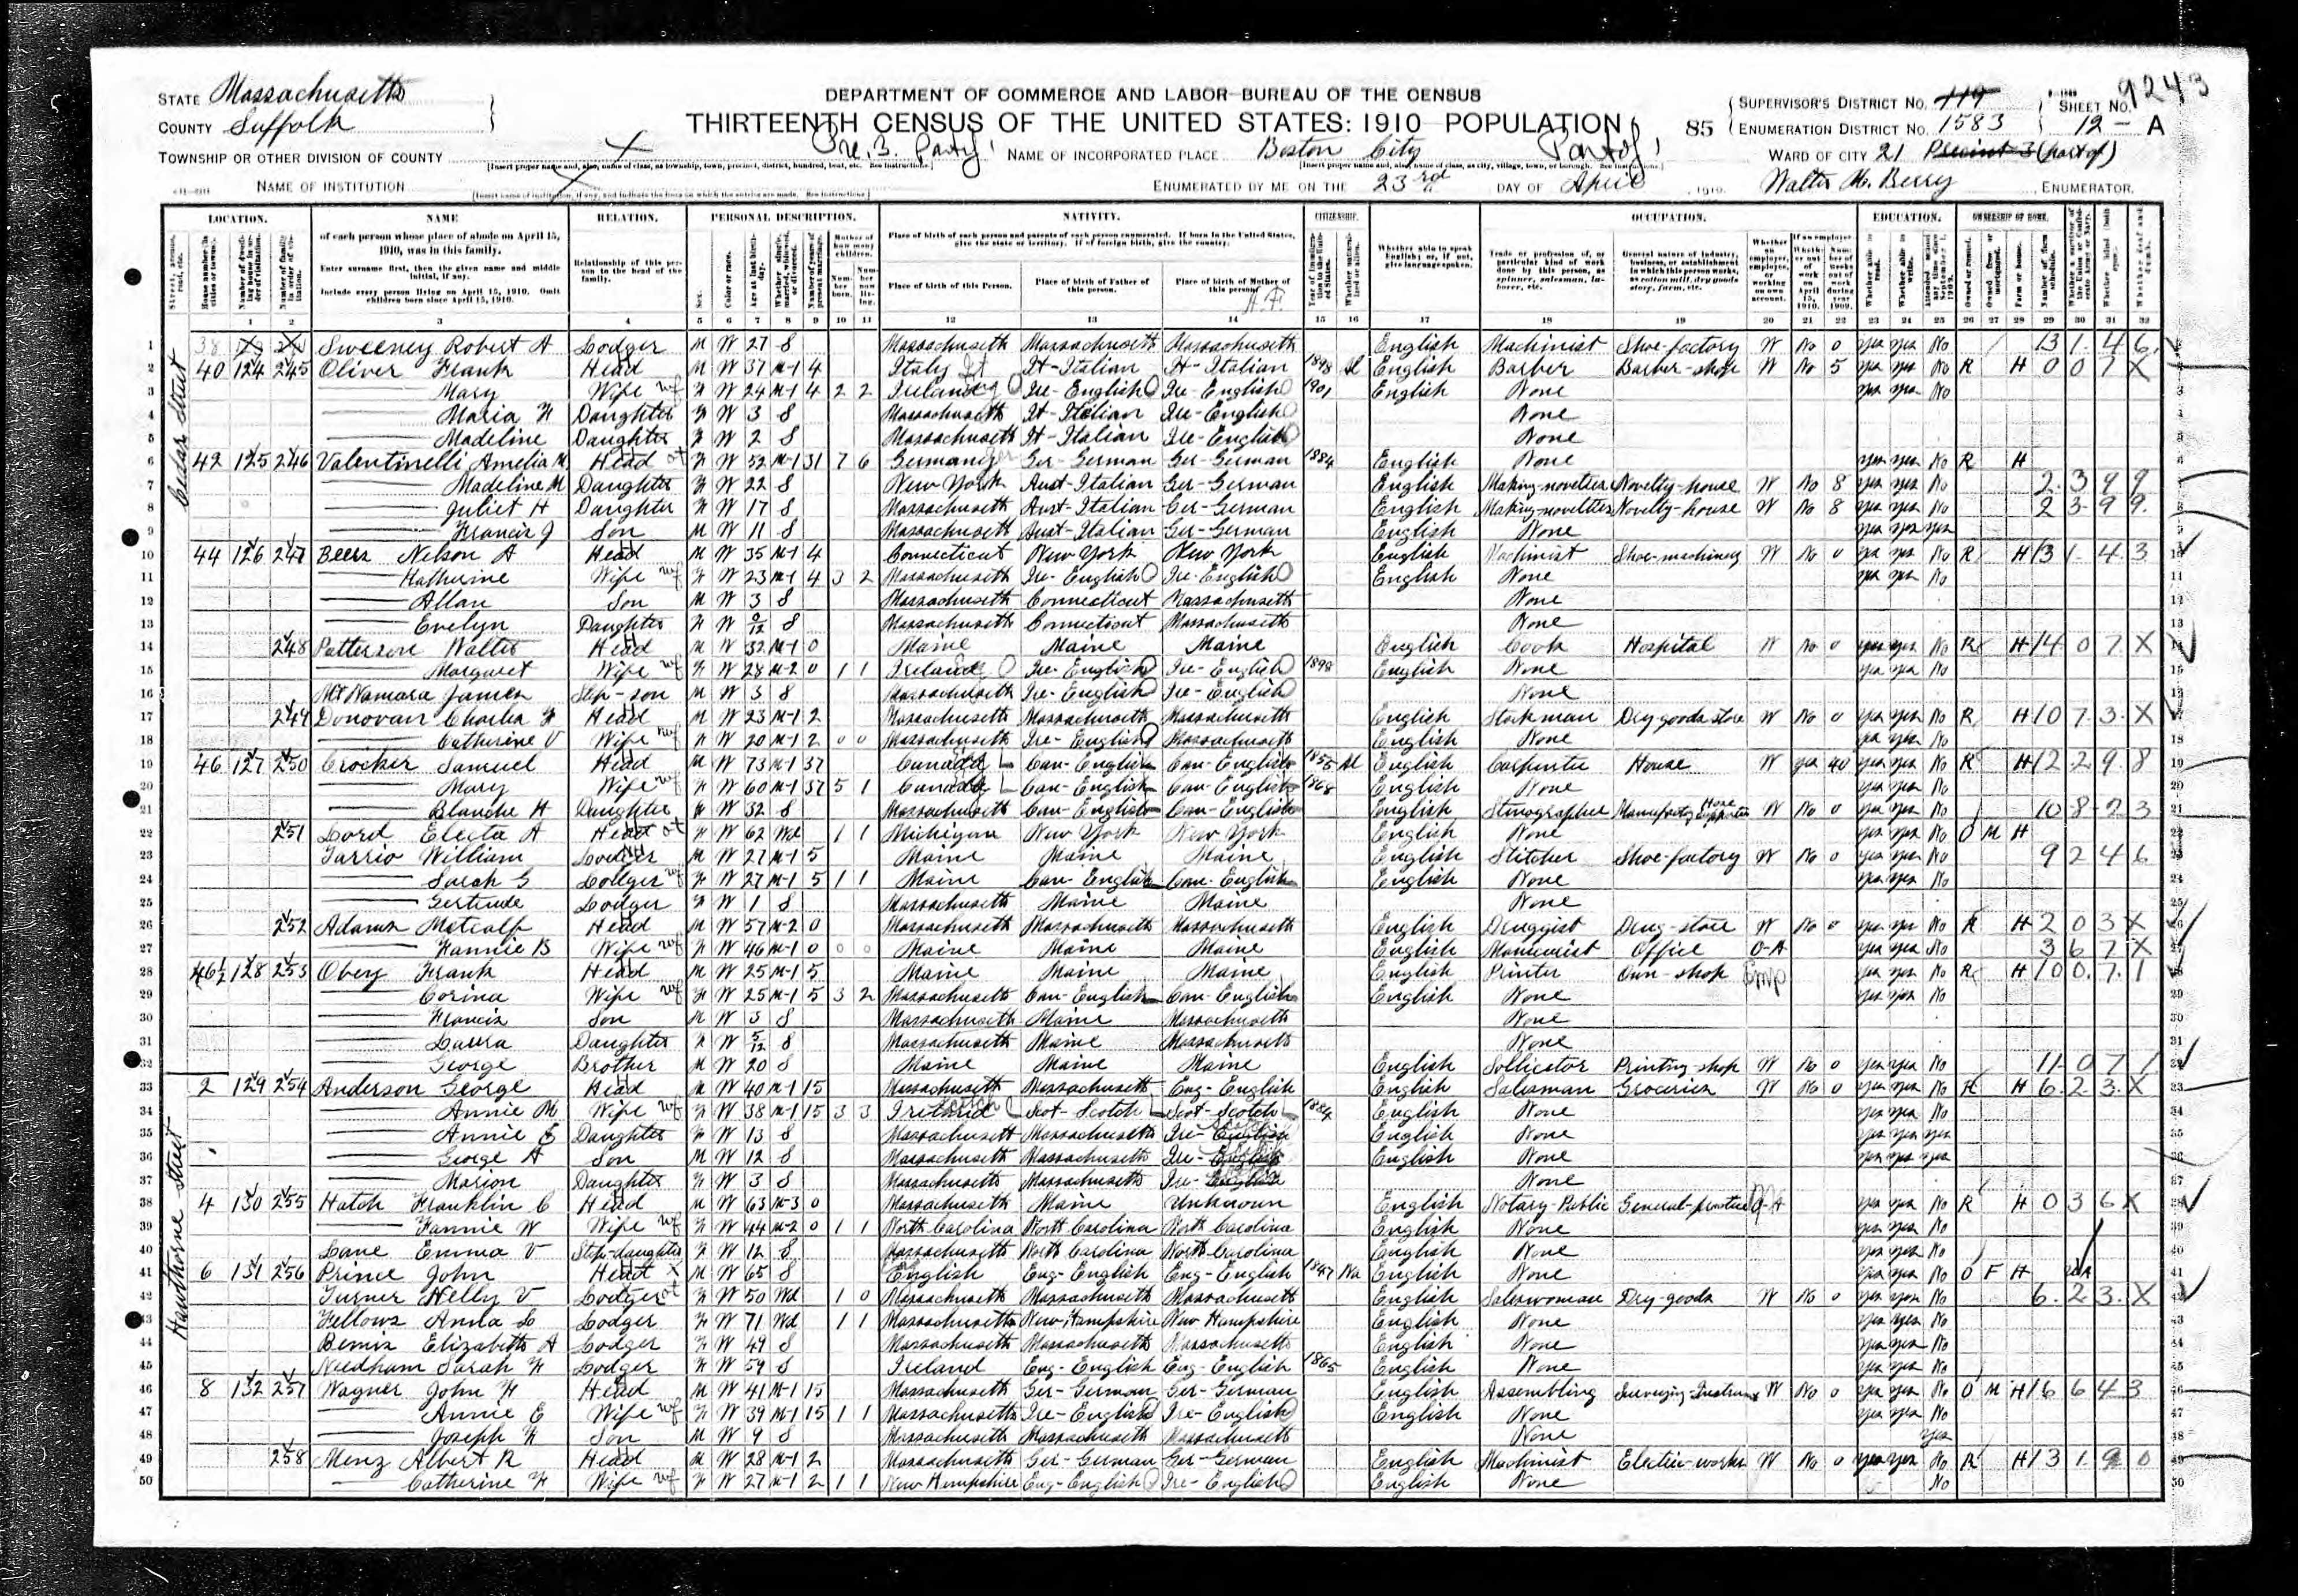 9243
STATE Massachusetts
DEPARTMENT OF COMMERCE AND LABOR-BUREAU OF THE CENSUS
SUPERVISOR'S DISTRICT No. 119 SHEET No.
COUNTY Suffolk
THIRTEENTH CENSUS OF THE UNITED STATES: 1910 POPULATION
85 ENUMERATION DISTRICT No. 1583 12 - A
TOWNSHIP OR OTHER DIVISION OF COUNTY X Pre. 3. Part of NAME OF INCORPORATED PLACE Boston City Part of WARD OF CITY 21 Precinct 3 (part of)
NAME OF INSTITUTION X ENUMERATED BY ME ON THE 23rd DAY OF April, 1910. Walter M. Berry ENUMERATOR.
LOCATION. NAME RELATION. PERSONAL DESCRIPTION. NATIVITY. CITIZENSHIP. OCCUPATION. EDUCATION. OWNERSHIP OF HOME.
of each person whose place of abode on April 15, 1910, was in this family.
Enter surname first, then the given name and middle initial, if any.
Include every person living on April 15, 1910. Omit children born since April 15, 1910.
Relationship of this person to the head of the family.
Place of birth of each person and parents of each person enumerated. If born in the United States, give the state or territory. If of foreign birth, give the country.
Place of birth of this Person. Place of birth of Father of this person. Place of birth of Mother of this person.
Whether able to speak English; or, if not, give language spoken.
1 2 3 4 5 6 7 8 9 10 11 12 13 14 15 16 17 18 19 20 21 22 23 24 25 26 27 28 29 30 31 32
Cedar Street
1 38 Sweeney Robert A Lodger M W 27 S Massachusetts Massachusetts Massachusetts English Machinist Shoe-factory W No 0 yes yes No 13 1 4 6
2 40 124 245 Oliver Frank Head M W 37 M-1 4 Italy It-Italian It-Italian 1898 Al English Barber Barber-shop W No 5 yes yes No R H 0 0 7 X
3 Mary Wife F W 24 M-1 4 2 2 Ireland Ire-English Ire-English 1901 English None yes yes No
4 Maria F Daughter F W 3 S Massachusetts It-Italian Ire-English None
5 Madeline Daughter F W 2 S Massachusetts It-Italian Ire-English None
6 42 125 246 Valentinelli Amelia M Head F W 52 M-1 31 7 6 Germany Ger-German Ger-German 1884 English None yes yes No R H
7 Madeline M Daughter F W 22 S New York Aust-Italian Ger-German English Making-novelties Novelty-house W No 8 yes yes No 2 3 9 9
8 Juliet H Daughter F W 17 S Massachusetts Aust-Italian Ger-German English Making-novelties Novelty-house W No 8 yes yes No 2 3 9 9
9 Francis J Son M W 11 S Massachusetts Aust-Italian Ger-German English None yes yes yes
10 44 126 247 Beers Nelson A Head M W 35 M-1 4 Connecticut New York New York English Machinist Shoe-machinery W No 0 yes yes No R H 13 1 4 3
11 Katherine Wife F W 23 M-1 4 3 2 Massachusetts Ire-English Ire-English English None yes yes No
12 Allan Son M W 3 S Massachusetts Connecticut Massachusetts None
13 Evelyn Daughter F W S Massachusetts Connecticut Massachusetts None
14 248 Patterson Walter Head M W 32 M-1 0 Maine Maine Maine English Cook Hospital W No 0 yes yes No R H 14 0 7 X
15 Margaret Wife F W 28 M-2 0 1 1 Ireland Ire-English Ire-English 1898 English None yes yes No
16 McNamara James Step-son M W 3 S Massachusetts Ire-English Ire-English None
17 249 Donovan Charles F Head M W 23 M-1 2 Massachusetts Massachusetts Massachusetts English Stockman Dry goods store W No 0 yes yes No R H 10 7 3 X
18 Catherine V Wife F W 20 M-1 2 0 0 Massachusetts Ire-English Massachusetts English None yes yes No
19 46 127 250 Crocker Samuel Head M W 73 M-1 37 Canada Can-English Can-English 1855 Al English Carpenter House W yes 40 yes yes No R H 12 2 9 8
20 Mary Wife F W 60 M-1 37 5 1 Canada Can-English Can-English 1868 English None yes yes No
21 Blanche H Daughter F W 32 S Massachusetts Can-English Can-English English Stenographer Manufactory Hose Supporter W No 0 yes yes No 10 8 2 3
22 251 Lord Electa A Head F W 62 Wd 1 1 Michigan New York New York English None yes yes No O M H
23 Tarrio William Lodger M W 27 M-1 5 Maine Maine Maine English Stitcher Shoe-factory W No 0 yes yes No 9 2 4 6
24 Sarah G Lodger F W 27 M-1 5 1 1 Maine Can-English Can-English English None yes yes No
25 Gertrude Lodger F W 1 S Massachusetts Maine Maine None
26 252 Adams Metcalf Head M W 57 M-2 0 Massachusetts Massachusetts Massachusetts English Druggist Drug-store W No 0 yes yes No R H 2 0 3 X
27 Fannie B Wife F W 46 M-1 0 0 0 Maine Maine Maine English Manicurist Office O-A yes yes No 3 6 7 X
28 46½ 128 253 Obey Frank Head M W 25 M-1 5 Maine Maine Maine English Printer Own-shop Emp yes yes No R H 10 0 7 1
29 Corina Wife F W 25 M-1 5 3 2 Massachusetts Can-English Can-English English None yes yes No
30 Francis Son M W 3 S Massachusetts Maine Massachusetts None
31 Laura Daughter F W 5/12 S Massachusetts Maine Massachusetts None
32 George Brother M W 20 S Maine Maine Maine English Sollicator Printing-shop W No 0 yes yes No 11 0 7 1
Hawthorne Street
33 2 129 254 Anderson George Head M W 40 M-1 15 Massachusetts Massachusetts Eng-English English Salesman Groceries W No 0 yes yes No R H 6 2 3 X
34 Annie M Wife F W 38 M-1 15 3 3 Ireland Scot-Scotch Scot-Scotch 1884 English None yes yes No
35 Annie E Daughter F W 13 S Massachusetts Massachusetts Ire-English English None yes yes yes
36 George A Son M W 12 S Massachusetts Massachusetts Ire-English English None yes yes yes
37 Marion Daughter F W 3 S Massachusetts Massachusetts Ire-English None
38 4 130 255 Hatch Franklin C Head M W 63 M-3 0 Massachusetts Maine Unknown English Notary-Public General-practice O-A yes yes No R H 0 3 6 X
39 Fannie W Wife F W 44 M-2 0 1 1 North Carolina North Carolina North Carolina English None yes yes No
40 Lane Emma V Step-daughter F W 12 S Massachusetts North Carolina North Carolina English None yes yes No
41 6 131 256 Prince John Head M W 65 S English Eng-English Eng-English 1847 Na English None yes yes No O F H UA
42 Turner Nelly V Lodger F W 50 Wd 1 0 Massachusetts Massachusetts Massachusetts English Saleswoman Dry-goods W No 0 yes yes No 6 2 3 X
43 Fellows Anna L Lodger F W 71 Wd 1 1 Massachusetts New Hampshire New Hampshire English None yes yes No
44 Bemis Elizabeth A Lodger F W 49 S Massachusetts Massachusetts Massachusetts English None yes yes No
45 Needham Sarah F Lodger F W 59 S Ireland Eng-English Eng-English 1865 English None yes yes No
46 8 132 257 Wagner John F Head M W 41 M-1 15 Massachusetts Ger-German Ger-German English Assembling Surveying-Instrum W No 0 yes yes No O M H 16 6 4 3
47 Annie E Wife F W 39 M-1 15 1 1 Massachusetts Ire-English Ire-English English None yes yes No
48 Joseph F Son M W 9 S Massachusetts Massachusetts Massachusetts None yes
49 258 Menz Albert R Head M W 28 M-1 2 Massachusetts Ger-German Ger-German English Machinist Electric-works W No 0 yes yes No R H 13 1 9 0
50 Catherine F Wife F W 27 M-1 2 1 1 New Hampshire Eng-English Ire-English English None No